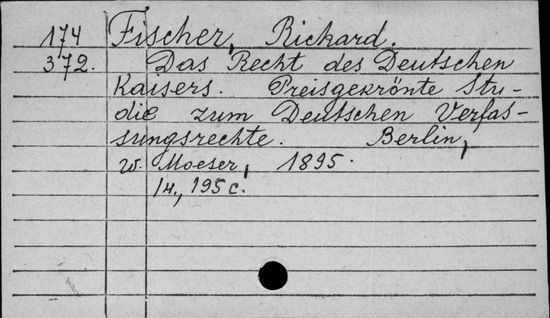 174 Fischer, Rickard.
372. Das Recht des Deutschen
Kaisers. Preisgekrönte Stu-
die zum Deutschen Verfas-
sungsrechte. Berlin,
W. Moeser, 1895.
14., 195 c.